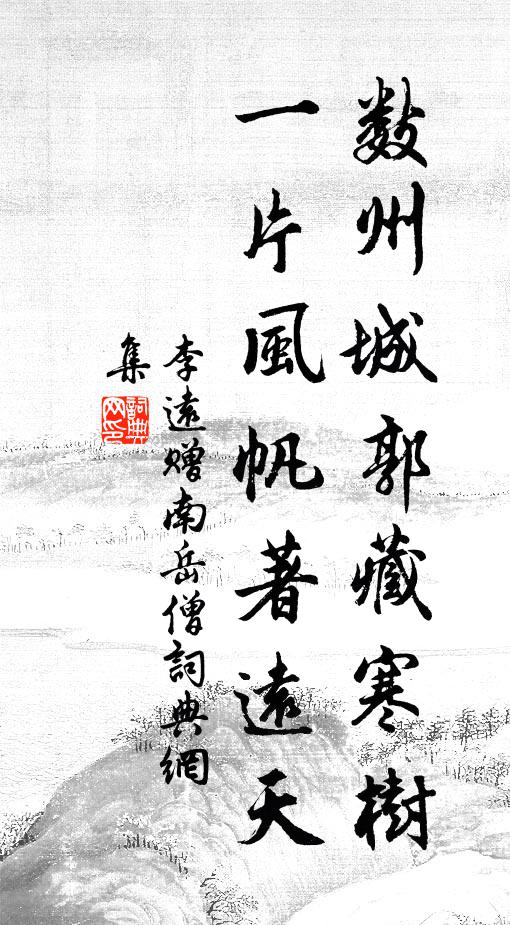 數州城郭藏寒樹
一片風帆著遠天
李遠贈南岳僧詞典網
集
詞典網印